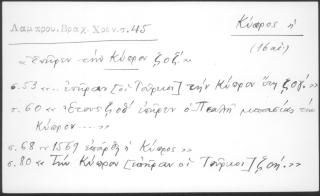 Λαμπρου.Βραχ.Χρον.σ.45
Κύπρος ἡ
(16 αἰ)
« ἐπῆραν τὴν Κύπρον ζοζ΄ »
σ. 53 « ... ἐπῆραν [οἱ Τοῦρκοι] τὴν Κύπρον
σ. 60 « ὁ Πιαλῆ μπασίας τὴν
Κύπρον ..... »
σ. 68 « 1569 ἐπάρθη ἡ Κύπρος »
σ. 80 « Τὴν Κύπρον [ἐπῆραν οἱ Τοῦρκοι] ζοή. »